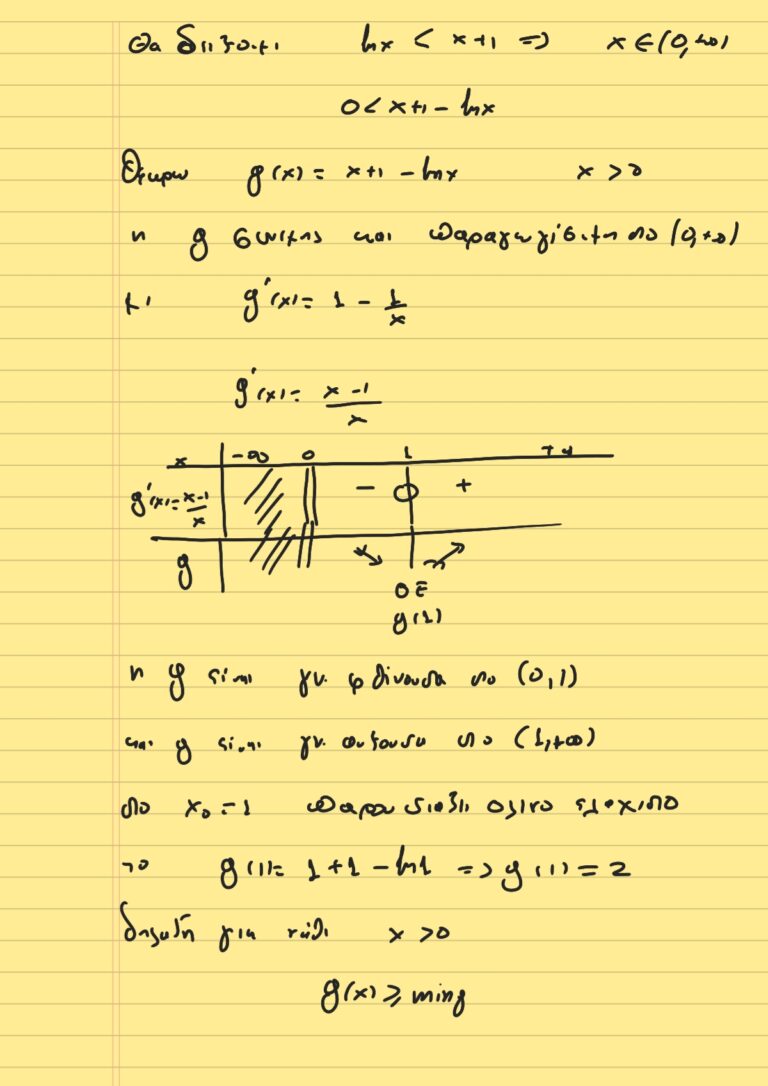 Θα δείξουμε ln x < x+1 => x ∈ (0,+∞)
0 < x+1 - ln x
Θεωρω g(x) = x+1 - ln x x > 0
η g συνεχης και παραγωγίσιμη στο (0,+∞)
g'(x) = 1 - 1/x
g'(x) = x-1/x
x -∞ 0 1 +∞
g'(x) = x-1/x - 0 +
g ↘ ↗
Ο Ε
g(1)
η g είναι γν. φθίνουσα στο (0,1)
και g είναι γν. αυξουσα στο (1,+∞)
στο x₀ = 1 παρουσιαζει ολικο ελαχιστο
το g(1) = 1+1 - ln1 => g(1) = 2
δηλαδή για κάθε x > 0
g(x) ≥ min g